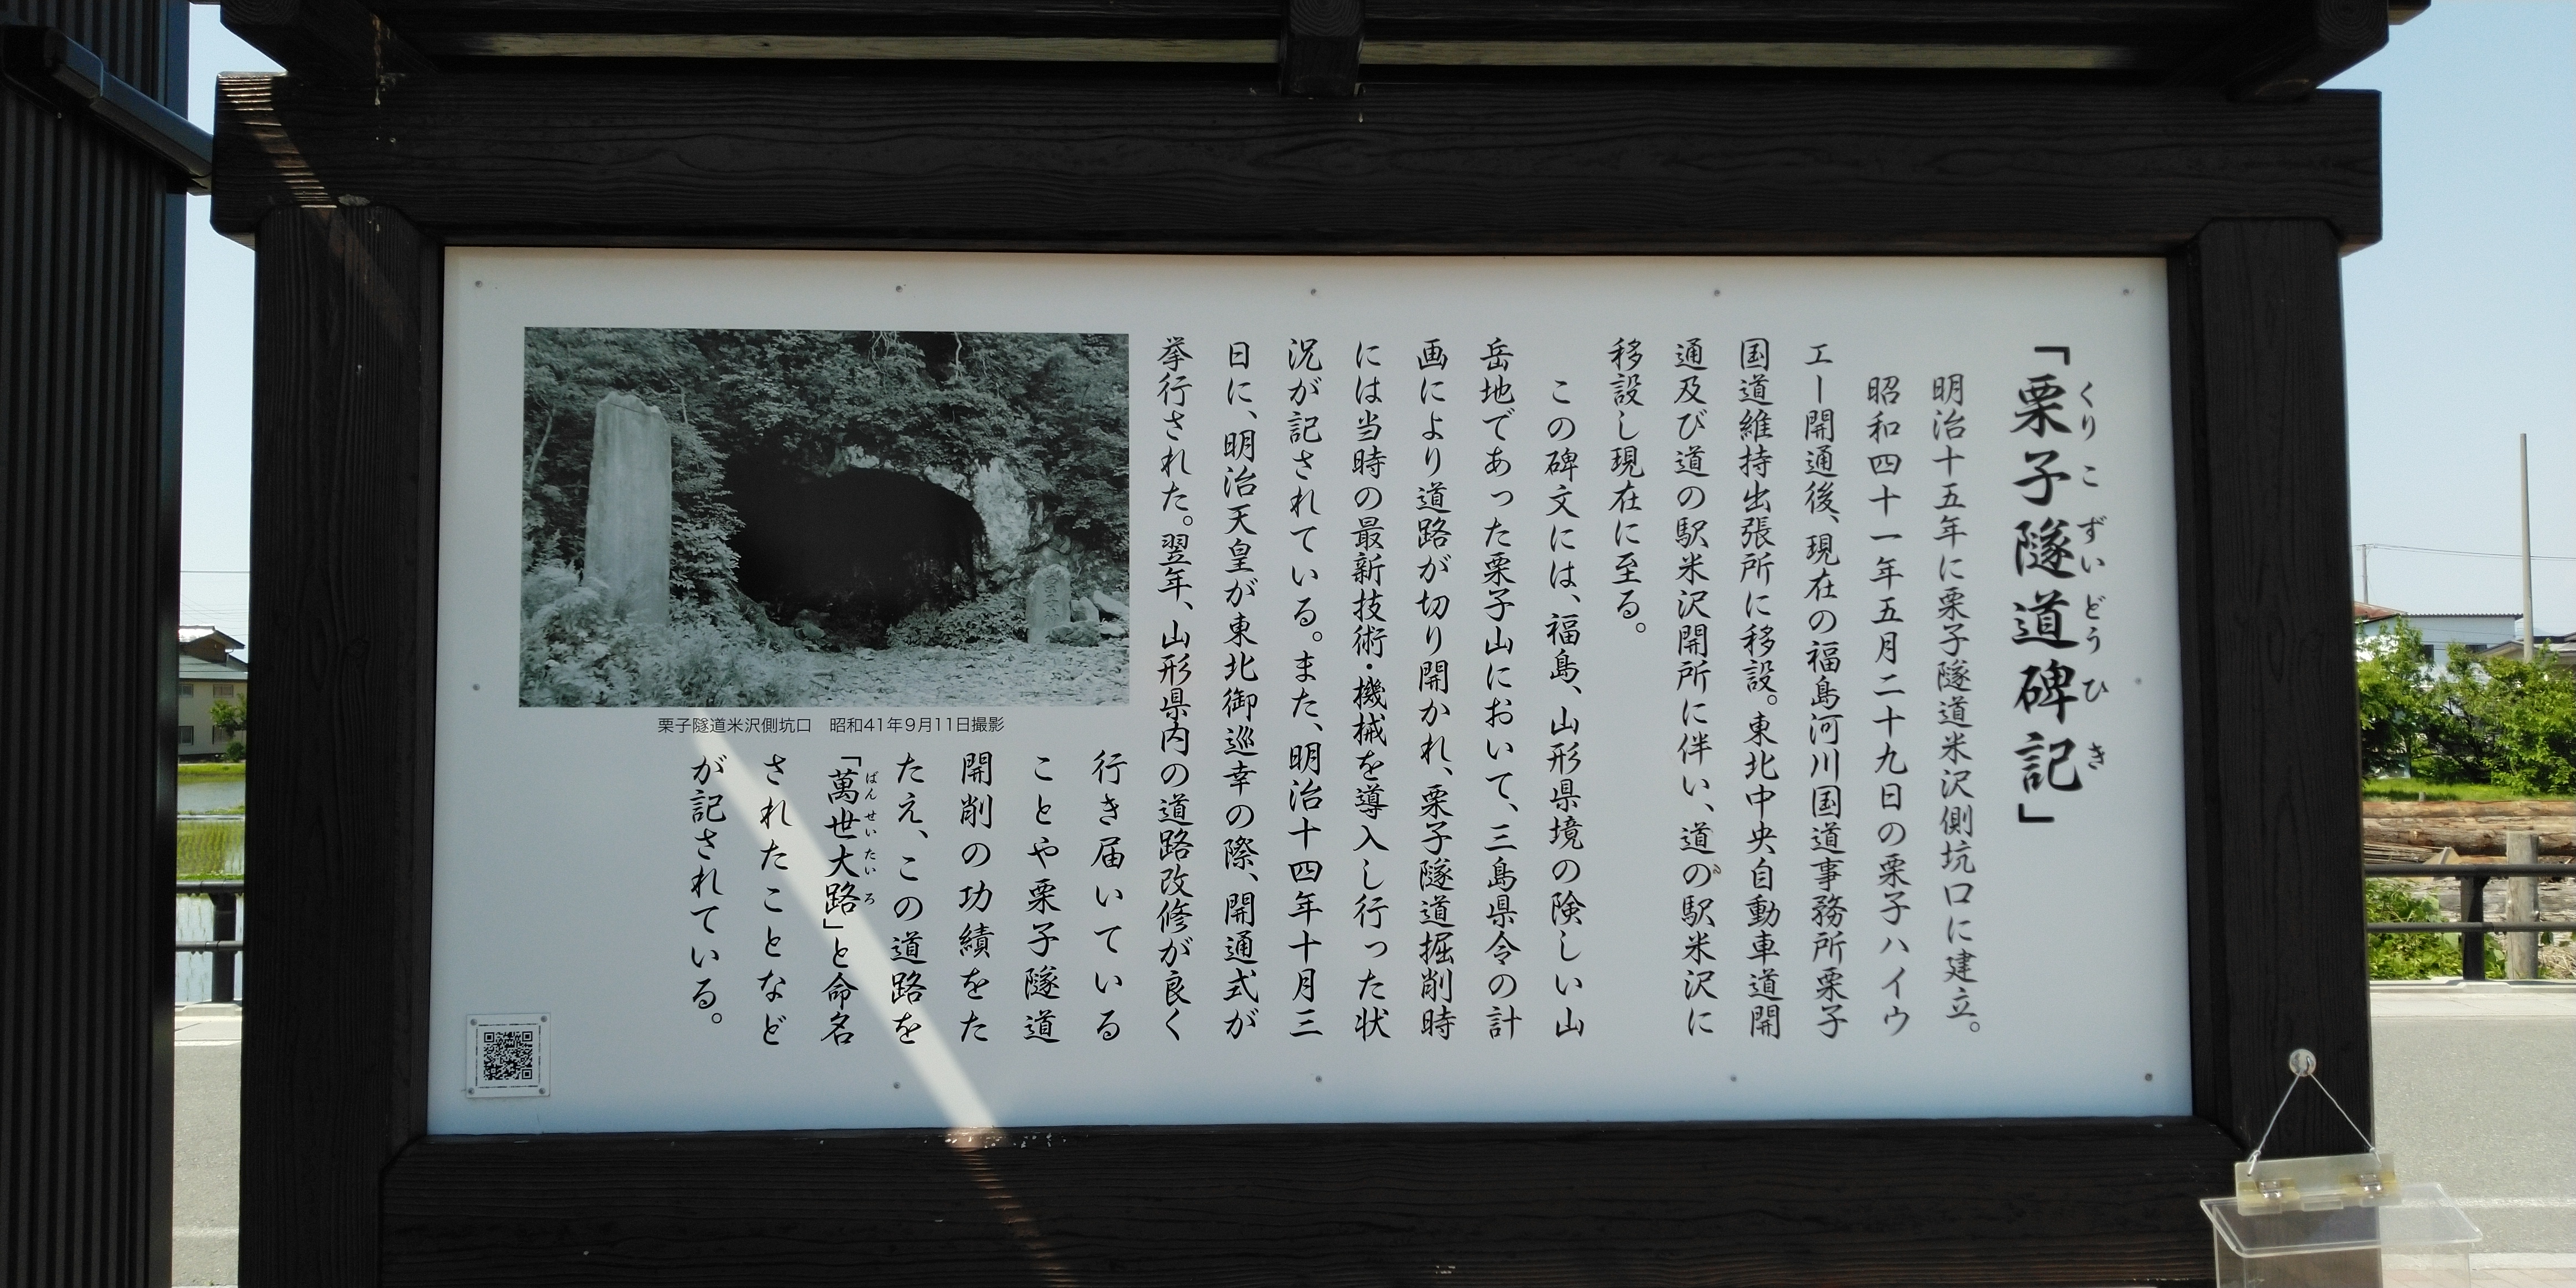 「栗子隧道碑記」
くりこずいどうひき
明治十五年に栗子隧道米沢側坑口に建立。
昭和四十一年五月二十九日の栗子ハイウ
エー開通後、現在の福島河川国道事務所栗子
国道維持出張所に移設。東北中央自動車道開
通及び道の駅米沢開所に伴い、道の駅米沢に
移設し現在に至る。
この碑文には、福島、山形県境の険しい山
岳地であった栗子山において、三島県令の計
画により道路が切り開かれ、栗子隧道掘削時
には当時の最新技術・機械を導入し行った状
況が記されている。また、明治十四年十月三
日に、明治天皇が東北御巡幸の際、開通式が
挙行された。翌年、山形県内の道路改修が良く
行き届いている
ことや栗子隧道
開削の功績をた
たえ、この道路を
「萬世大路」と命名
ばんせいたいろ
されたことなど
が記されている。
栗子隧道米沢側坑口　昭和41年9月11日撮影